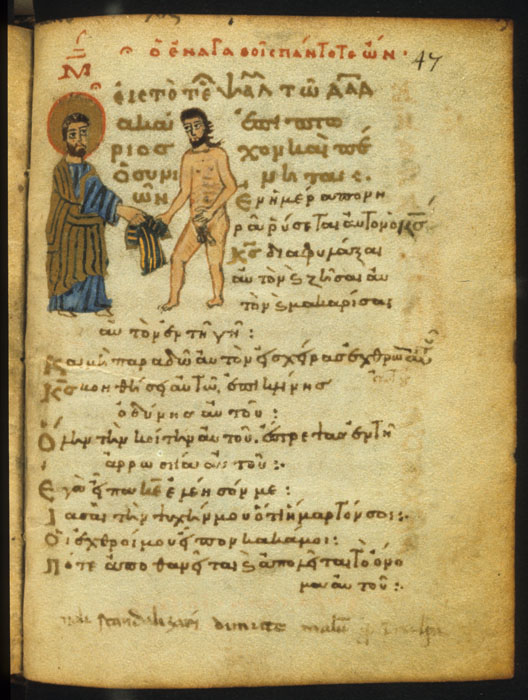 ὁ ἐν ἀγαθοῖς πάντοτε ὤν· 47
Μ
εἰς τὸ τέ ψαλ τῶ δαδ
ακα ἐπὶ πτω
ριος χὸν καὶ πέ
ὁ συνι νητα:
ὼν Ἐν ἡμέρα πονη
ρᾶ ῥύσεται αὐτὸν ὁ κς
Κς διαφυλάξαι
αὐτὸν ϗ ζήσαι αὐ
τὸν ϗ μακαρίσαι
αὐτὸν ἐν τῆ γῆ:
Καὶ μὴ παραδῶ αὐτὸν εἰς χεῖρας ἐχθρῶν αὐτοῦ
Κς βοηθήσει αὐτῶ, ἐπὶ κλίνης
ὀδύνης αὐτοῦ:
Ὅλην τὴν κοίτην αὐτοῦ, ἔστρεψας ἐν τῆ
ἀρρωστία αὐτοῦ:
Ἐγὼ εἶπα κε ἐλέησόν με:
Ἴασαι τὴν ψυχήν μου ὅτι ἥμαρτόν σοι:
Οἱ ἐχθροί μου εἶπον κακά μοι:
Πότε ἀποθανεῖται ϗ ἀπολεῖται τὸ ὄνο
μα αὐτοῦ:
scandalizari dimitte